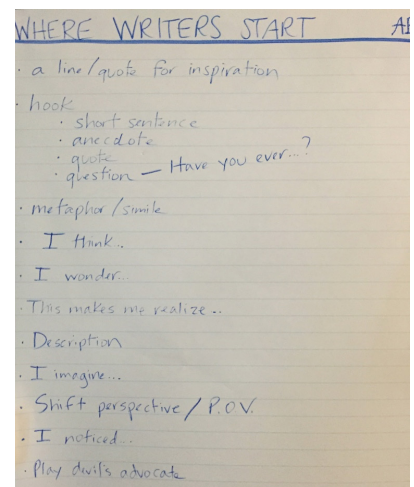 WHERE WRITERS START
· a line/quote for inspiration
· hook
· short sentence
· anecdote
· quote
· question — Have you ever...?
· metaphor/simile
· I think..
· I wonder...
· This makes me realize...
· Description
· I imagine...
· Shift perspective / P.O.V.
· I noticed...
· Play devil's advocate